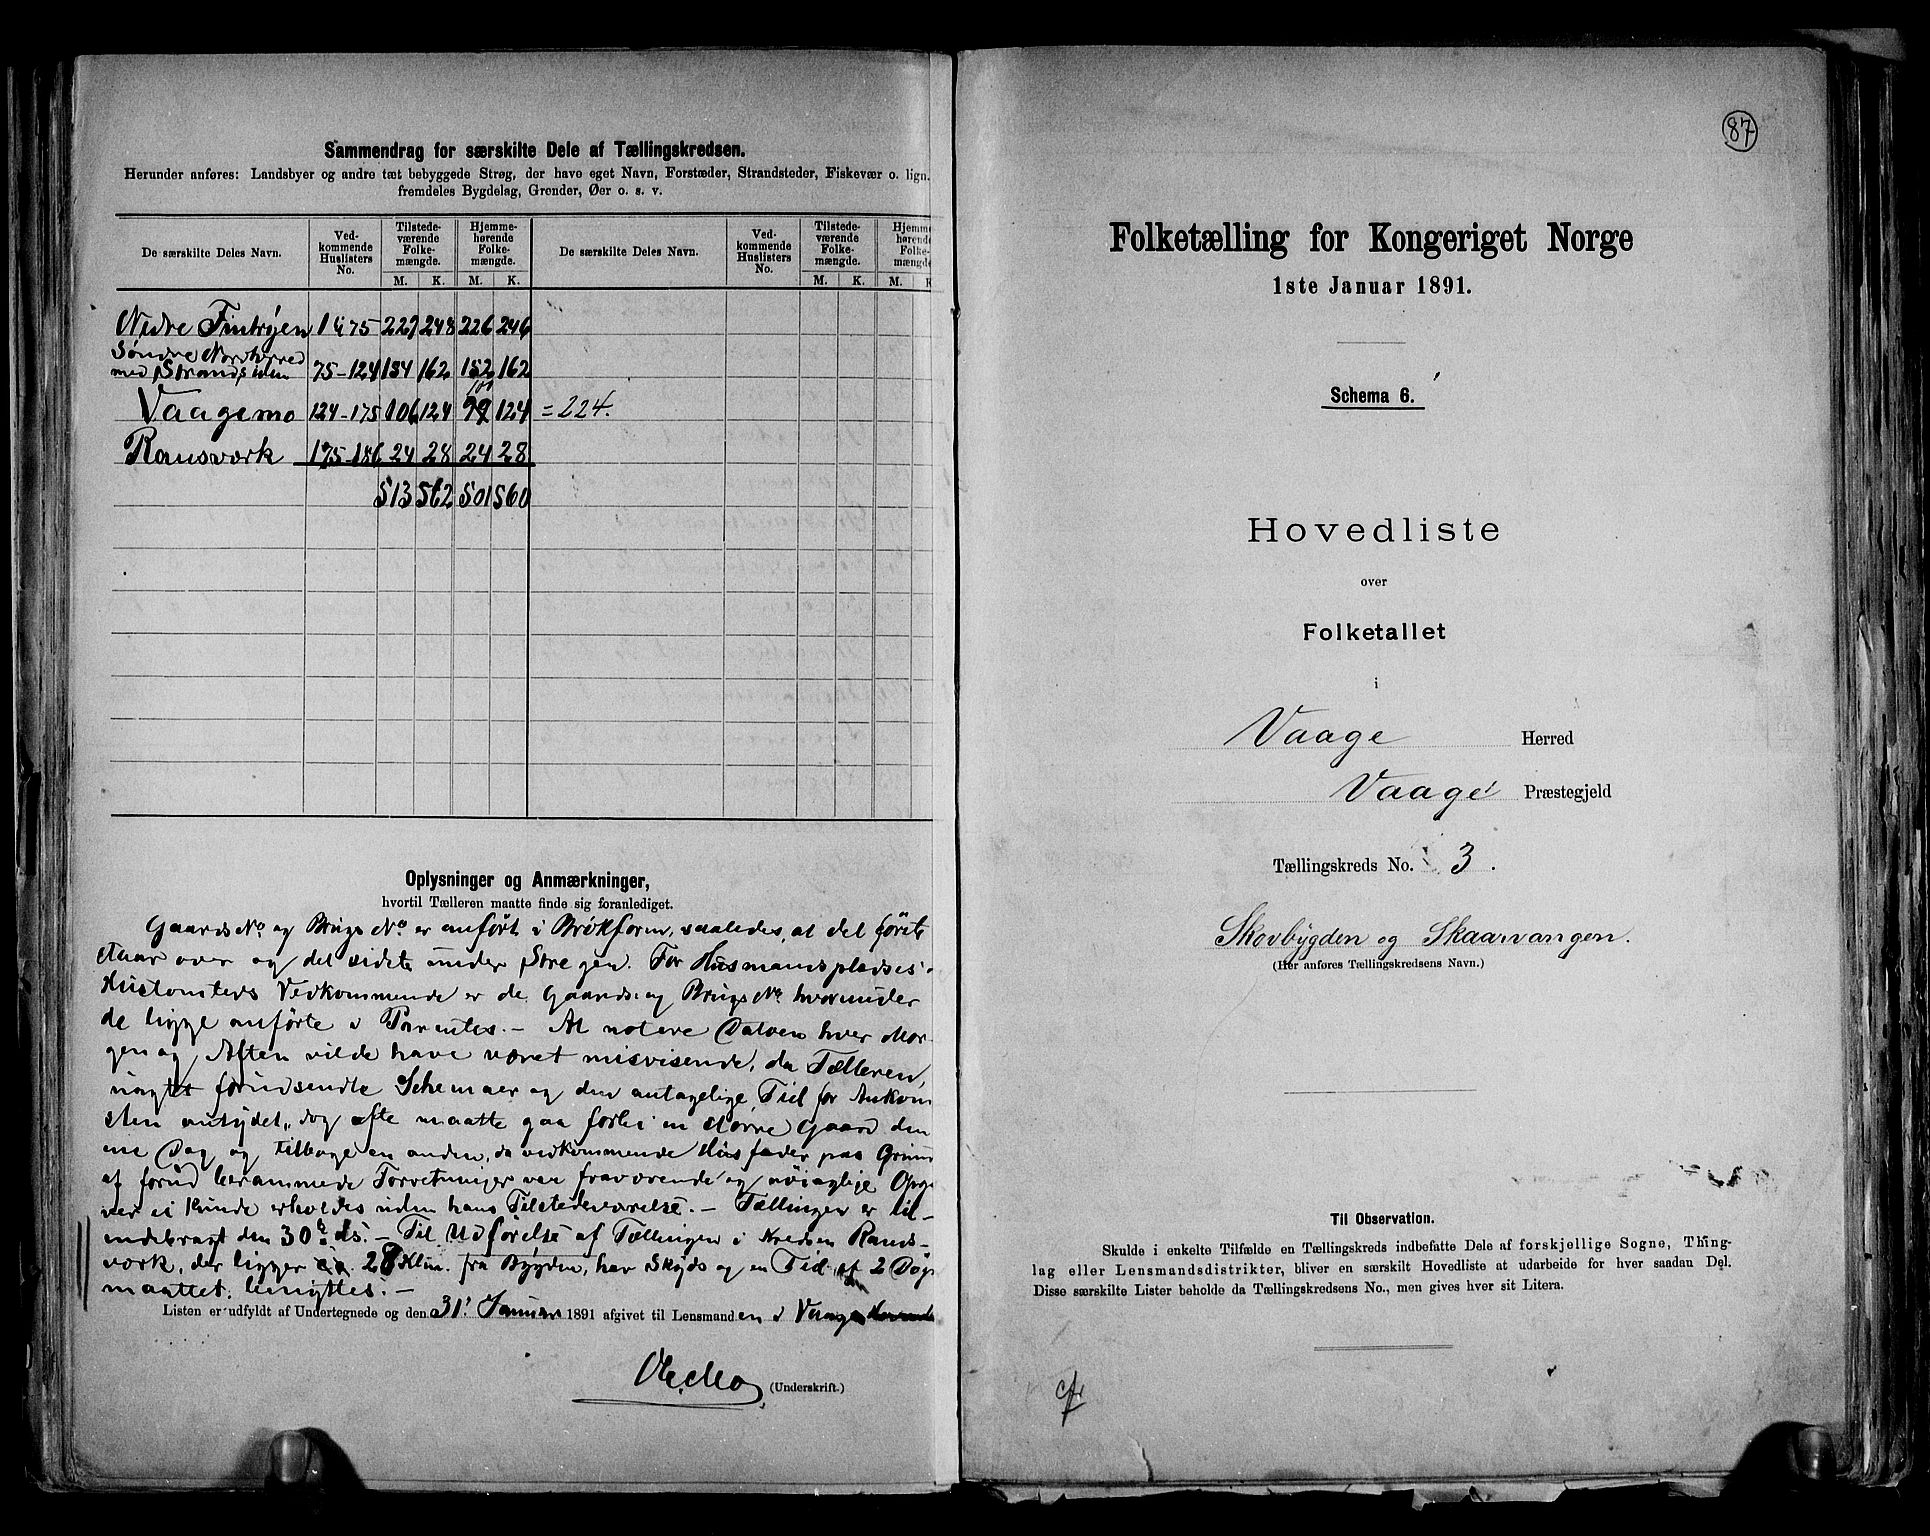 Sammendrag for særskilte Dele af Tællingskredsen.
Herunder anføres: Landsbyer og andre tæt bebyggede Strøg, der have eget Navn, Forstæder, Strandsteder, Fiskevær o. lign.
fremdeles Bygdelag, Grender, Øer o. s. v.
De særskilte Deles Navn. Ved-kommende Huslisters No. Tilstede-værende Folke-mængde. Hjemme-hørende Folke-mængde. De særskilte Deles Navn. Ved-kommende Huslisters No. Tilstede-værende Folke-mængde. Hjemm hørend Folke mængd
M. K. M. K. M. K. M. K
Nedre Finbøen 1 75 229 248 226 246
Søndre Nordherred
med Strandsiden 75-124 154 162 152 162
101
Vaagemo 124-175 106 124 99 124 = 224.
Randsværk 175-186 24 28 24 28
513 562 501 560
Oplysninger og Anmærkninger,
hvortil Tælleren maatte finde sig foranlediget.
Gaards No og Brugs No er anført i Brøkform, saaledes, at det første
staar over og det sidste under Stregen. For Husmandspladses
Vedkommende er de Gaards og Brugs No hvorunder
de ligge anførte i Parentes. – At notere Datoen hver Mor-
gen og Aften vilde have været misvisende, da Tælleren,
forudsendte Schemaer og den antagelige Tid for Ankom
sten antydet, dog ofte maatte gaa forbi en større Gaard den
ene Dag og tilbage en anden, da vedkommende Husfader paa Grund
af forud berammede Forretninger var fraværende og nøiagtige Opga
ver ei kunde erholdes uden hans Tilstedeværelse. – Tællingen er til-
endebragt den 30te ds. – Til Udførelse af Tællingen i Kredsen Rands-
værk, der ligger 28 Klm. fra Bygden, har Skyds og en Tid af 2 Døg
maattet benyttes. –
Listen er udfyldt af Undertegnede og den 31' Januar 1891 afgivet til Lensmanden i Vaage
Ole Mo
(Underskrift.)
87
Folketælling for Kongeriget Norge
1ste Januar 1891.
Schema 6.
Hovedliste
over
Folketallet
i
Vaage Herred
Vaage Præstegjeld
Tællingskreds No. 3.
Skovbygden og Skaarvangen.
(Her anføres Tællingskredsens Navn.)
Til Observation.
Skulde i enkelte Tilfælde en Tællingskreds indbefatte Dele af forskjellige Sogne, Thing-
lag eller Lensmandsdistrikter, bliver en særskilt Hovedliste at udarbeide for hver saadan Del.
Disse særskilte Lister beholde da Tællingskredsens No., men gives hver sit Litera.